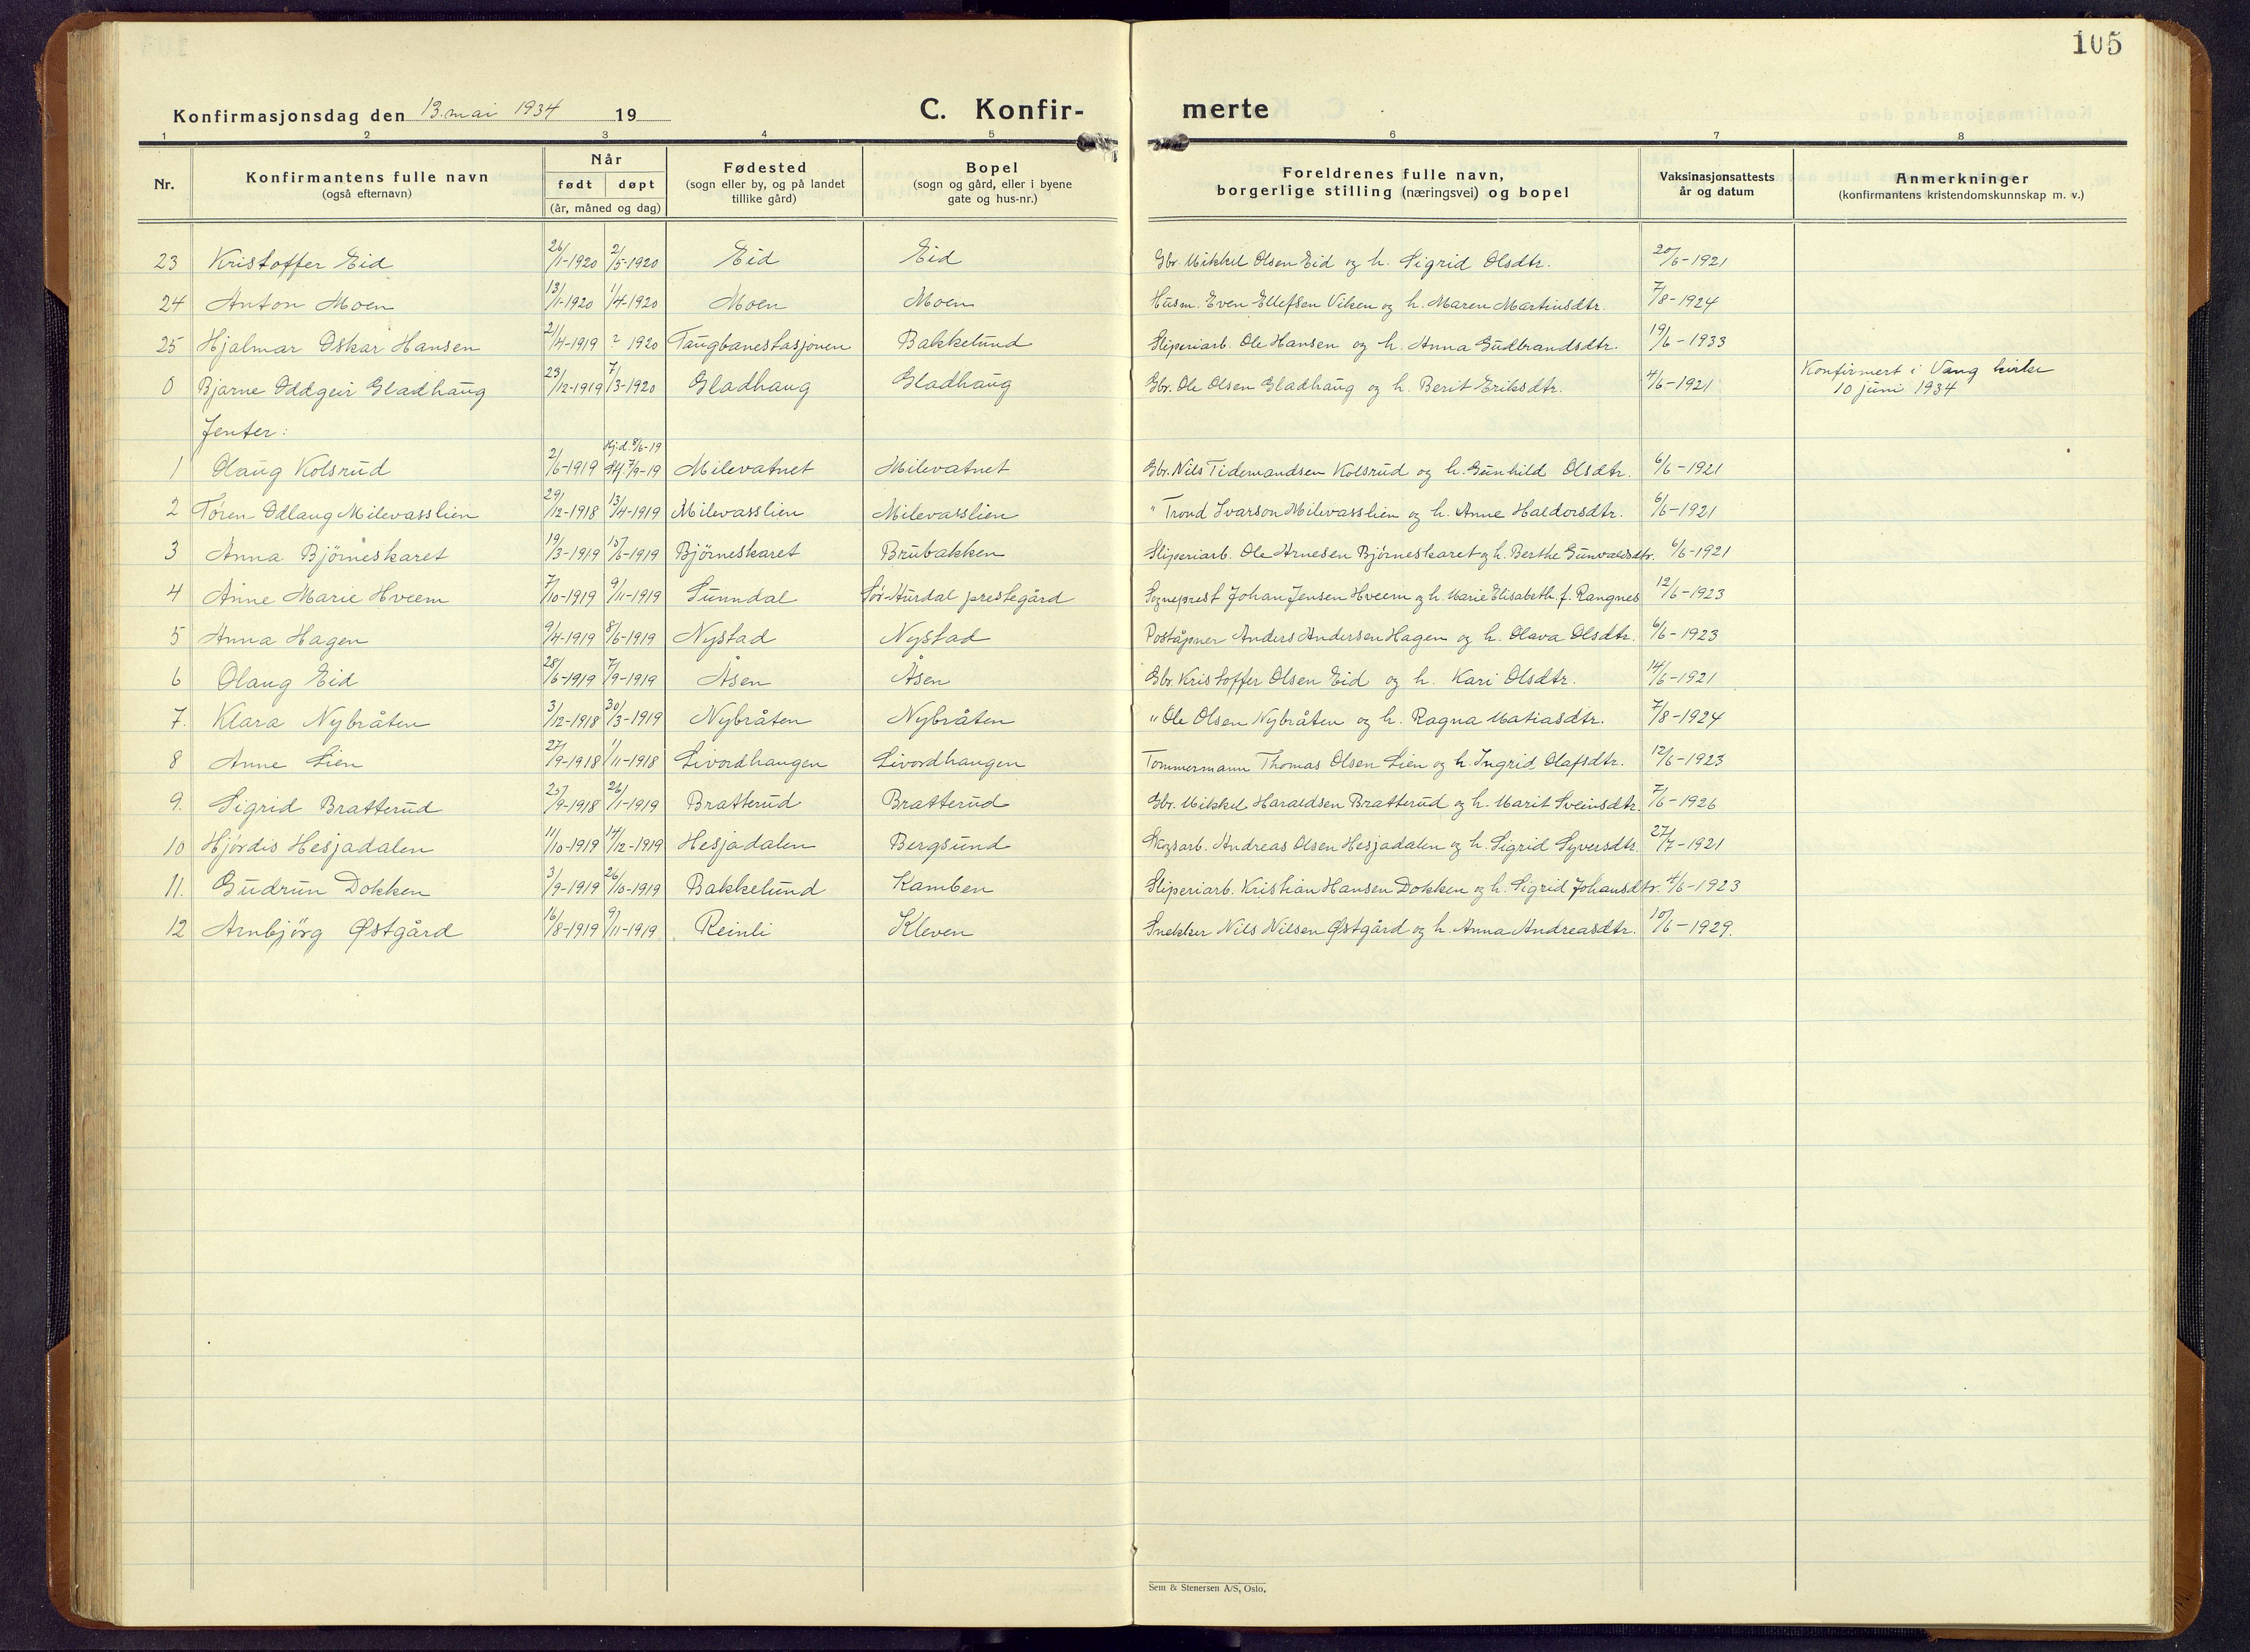 105
Konfirmasjonsdag den 13. mai 1934 19
C. Konfir-merte
1 2 3 4 5 6 7 8
Nr. Konfirmantens fulle navn (også efternavn) Når født døpt (år, måned og dag) Fødested (sogn eller by, og på landet tillike gård) Bopel (sogn og gård, eller i byene gate og hus-nr.) Foreldrenes fulle navn, borgerlige stilling (næringsvei) og bopel Vaksinasjonsattests år og datum Anmerkninger (konfirmantens kristendomskunnskap m. v.)
23 Kristoffer Eid 26/1-1920 2/5-1920 Eid Eid Gbr. Mikkel Olsen Eid og h. Sigrid Olsdtr. 20/6-1921
24 Anton Moen 13/1-1920 1/4-1920 Moen Moen Husm. Even Ellefsen Viken og h. Maren Martinsdtr. 7/8-1924
25 Hjalmar Oskar Hansen 2/4-1919 ? 1920 Taugbanestasjonen Bakkelund Sliperiarb. Ole Hansen og h. Anna Gudbrandsdtr. 19/6-1933
0 Bjarne Oddgeir Gladhaug 23/12-1919 7/3-1920 Gladhaug Gladhaug Gbr. Ole Olsen Gladhaug og h. Berit Eriksdtr. 4/6-1921 Konfirmert i Vang kirke 10 juni 1934
Jenter:
1 Olaug Kolsrud 2/6-1919 Hj.d. 8/6-19 7/9-19 Milevatnet Milevatnet Gbr. Nils Tidemandsen Kolsrud og h. Gunhild Olsdtr. 6/6-1921
2 Tøren Odlaug Milevasslien 29/12-1918 13/4-1919 Milevasslien Milevasslien " Trond Ivarson Milevasslien og h. Anne Haldorsdtr. 6/6-1921
3 Anna Bjørneskaret 19/3-1919 15/6-1919 Bjørneskaret Brubakken Sliperiarb. Ole Arnesen Bjørneskaret og h. Berthe Gunvaldsdtr. 6/6-1921
4 Anne Marie Hveem 7/10-1919 9/11-1919 Sunndal Sør-Aurdal prestegård Sogneprest Johan Jensen Hveem og h. Marie Elisabeth f. Rangnes 12/6-1923
5 Anna Hagen 9/4-1919 8/6-1919 Nystad Nystad Poståpner Anders Andersen Hagen og h. Olava Olsdtr. 6/6-1923
6 Olaug Eid 28/6-1919 7/9-1919 Åsen Åsen Gbr. Kristoffer Olsen Eid og h. Kari Olsdtr. 14/6-1921
7. Klara Nybråten 3/12-1918 30/3-1919 Nybråten Nybråten " Ole Olsen Nybråten og h. Ragna Matiasdtr. 7/8-1924
8 Anne Lien 27/9-1918 1/11-1918 Livordhaugen Livordhaugen Tommermann Thomas Olsen Lien og h. Ingrid Olafsdtr. 12/6-1923
9. Sigrid Bratterud 25/9-1918 26/1-1919 Bratterud Bratterud Gbr. Mikkel Haraldsen Bratterud og h. Marit Sveinsdtr. 7/6-1926
10 Hjørdis Hesjadalen 11/10-1919 14/12-1919 Hesjadalen Bergsund Skogsarb. Andreas Olsen Hesjadalen og h. Sigrid Syversdtr. 27/7-1921
11. Gudrun Dokken 3/9-1919 26/10-1919 Bakkelund Kamben Sliperiarb. Kristian Hansen Dokken og h. Sigrid Johansdtr. 4/6-1923
12 Arnbjørg Østgård 16/8-1919 9/11-1919 Reinli Kleven Snekker Nils Nilsen Østgård og h. Anna Andreasdtr. 10/6-1929.
Sem & Stenersen A/S, Oslo.